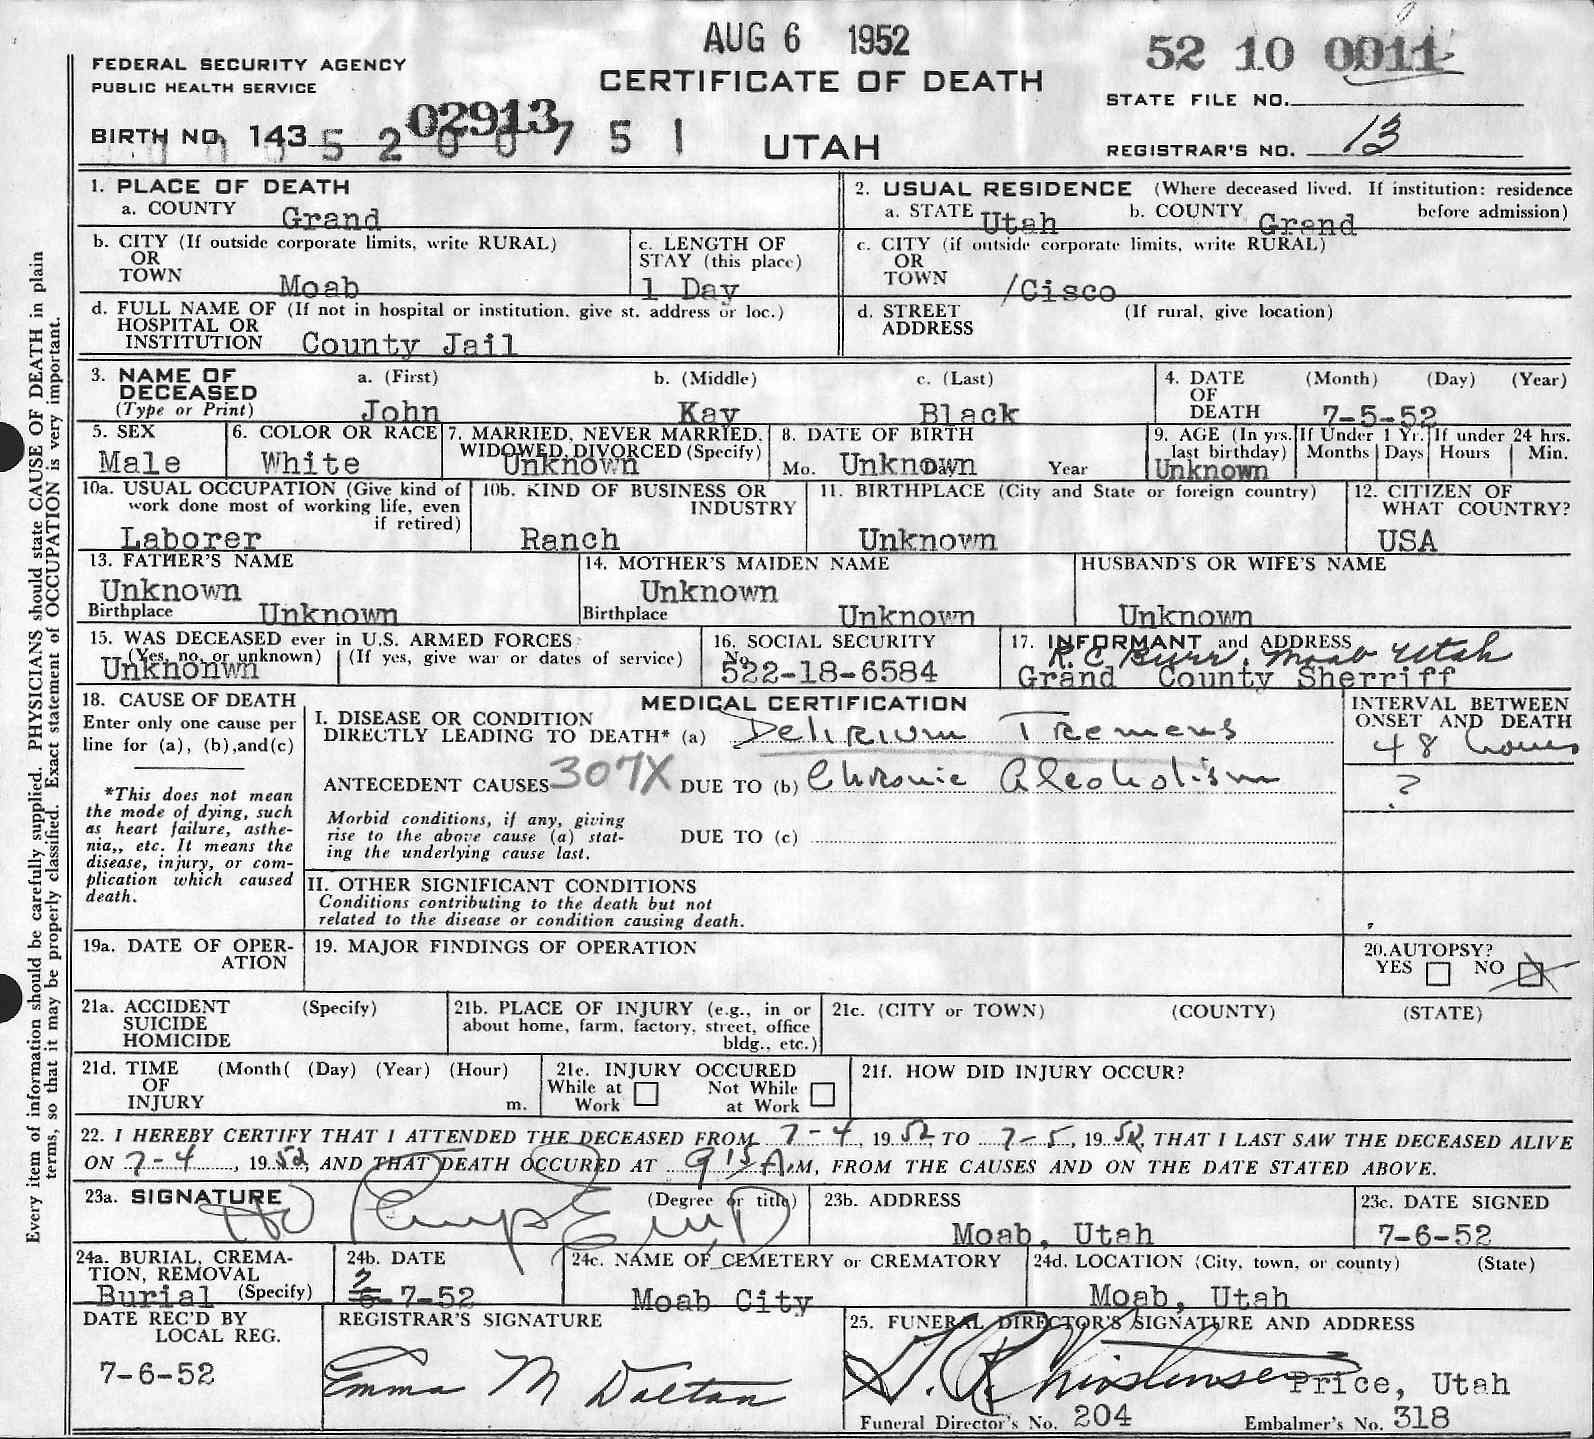 AUG 6 1952
52 10 0011
FEDERAL SECURITY AGENCY
PUBLIC HEALTH SERVICE
CERTIFICATE OF DEATH
STATE FILE NO.
02913
BIRTH NO. 143 5 2 0 0 7 5 1
UTAH
REGISTRAR'S NO. 13
Every item of information should be carefully supplied. PHYSICIANS should state CAUSE OF DEATH in plain
terms, so that it may be properly classified. Exact statement of OCCUPATION is very important.
1. PLACE OF DEATH
a. COUNTY Grand
2. USUAL RESIDENCE (Where deceased lived. If institution: residence
before admission)
a. STATE Utah b. COUNTY Grand
b. CITY (If outside corporate limits, write RURAL)
OR
TOWN Moab
c. LENGTH OF
STAY (this place)
1 Day
c. CITY (if outside corporate limits, write RURAL)
OR
TOWN /Cisco
d. FULL NAME OF (If not in hospital or institution. give st. address or loc.)
HOSPITAL OR
INSTITUTION County Jail
d. STREET (If rural, give location)
ADDRESS
3. NAME OF
DECEASED
(Type or Print)
a. (First) b. (Middle) c. (Last)
John Kay Black
4. DATE (Month) (Day) (Year)
OF
DEATH 7-5-52
5. SEX
Male
6. COLOR OR RACE
White
7. MARRIED, NEVER MARRIED,
WIDOWED, DIVORCED (Specify)
Unknown
8. DATE OF BIRTH
Mo. Day Year
Unknown
9. AGE (In yrs. last birthday)
Unknown
If Under 1 Yr.
Months Days
If under 24 hrs.
Hours Min.
10a. USUAL OCCUPATION (Give kind of
work done most of working life, even
if retired)
Laborer
10b. KIND OF BUSINESS OR
INDUSTRY
Ranch
11. BIRTHPLACE (City and State or foreign country)
Unknown
12. CITIZEN OF
WHAT COUNTRY?
USA
13. FATHER'S NAME
Unknown
Birthplace Unknown
14. MOTHER'S MAIDEN NAME
Unknown
Birthplace Unknown
HUSBAND'S OR WIFE'S NAME
Unknown
15. WAS DECEASED ever in U.S. ARMED FORCES
(Yes, no, or unknown) (If yes, give war or dates of service)
Unknonwn
16. SOCIAL SECURITY
No.
522-18-6584
17. INFORMANT and ADDRESS
R. C. Burr, Moab Utah
Grand County Sherriff
18. CAUSE OF DEATH
Enter only one cause per
line for (a), (b),and(c)
*This does not mean
the mode of dying, such
as heart failure, asthe-
nia,, etc. It means the
disease, injury, or com-
plication which caused
death.
MEDICAL CERTIFICATION
I. DISEASE OR CONDITION
DIRECTLY LEADING TO DEATH* (a) Delirium Tremens
ANTECEDENT CAUSES 307X DUE TO (b) Chronic Alcoholism
Morbid conditions, if any, giving
rise to the above cause (a) stat-
ing the underlying cause last.
DUE TO (c)
INTERVAL BETWEEN
ONSET AND DEATH
48 hours
?
II. OTHER SIGNIFICANT CONDITIONS
Conditions contributing to the death but not
related to the disease or condition causing death.
19a. DATE OF OPER-
ATION
19. MAJOR FINDINGS OF OPERATION
20.AUTOPSY?
YES NO
21a. ACCIDENT (Specify)
SUICIDE
HOMICIDE
21b. PLACE OF INJURY (e.g., in or
about home, farm, factory, street, office
bldg., etc.)
21c. (CITY or TOWN) (COUNTY) (STATE)
21d. TIME (Month( (Day) (Year) (Hour)
OF
INJURY m.
21e. INJURY OCCURED
While at Work
Not While at Work
21f. HOW DID INJURY OCCUR?
22. I HEREBY CERTIFY THAT I ATTENDED THE DECEASED FROM 7-4, 1952 TO 7-5, 1952, THAT I LAST SAW THE DECEASED ALIVE
ON 7-4, 1952, AND THAT DEATH OCCURED AT 9 15 A.M, FROM THE CAUSES AND ON THE DATE STATED ABOVE.
23a. SIGNATURE (Degree or title)
23b. ADDRESS
Moab, Utah
23c. DATE SIGNED
7-6-52
24a. BURIAL, CREMA-
TION, REMOVAL
(Specify)
Burial
24b. DATE
7
6-7-52
24c. NAME OF CEMETERY or CREMATORY
Moab City
24d. LOCATION (City, town, or county) (State)
Moab, Utah
DATE REC'D BY
LOCAL REG.
7-6-52
REGISTRAR'S SIGNATURE
Emma M Dalton
25. FUNERAL DIRECTOR'S SIGNATURE AND ADDRESS
Christensen Price, Utah
Funeral Director's No. 204 Embalmer's No. 318